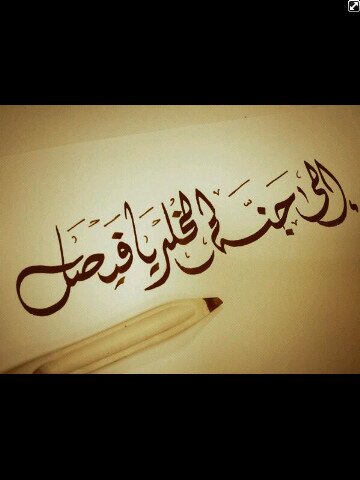 إلى جنة الخلد يا فيصل